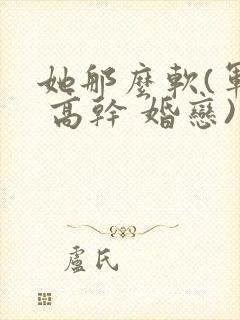 她那麼軟(軍
高幹 婚戀)
盧氏